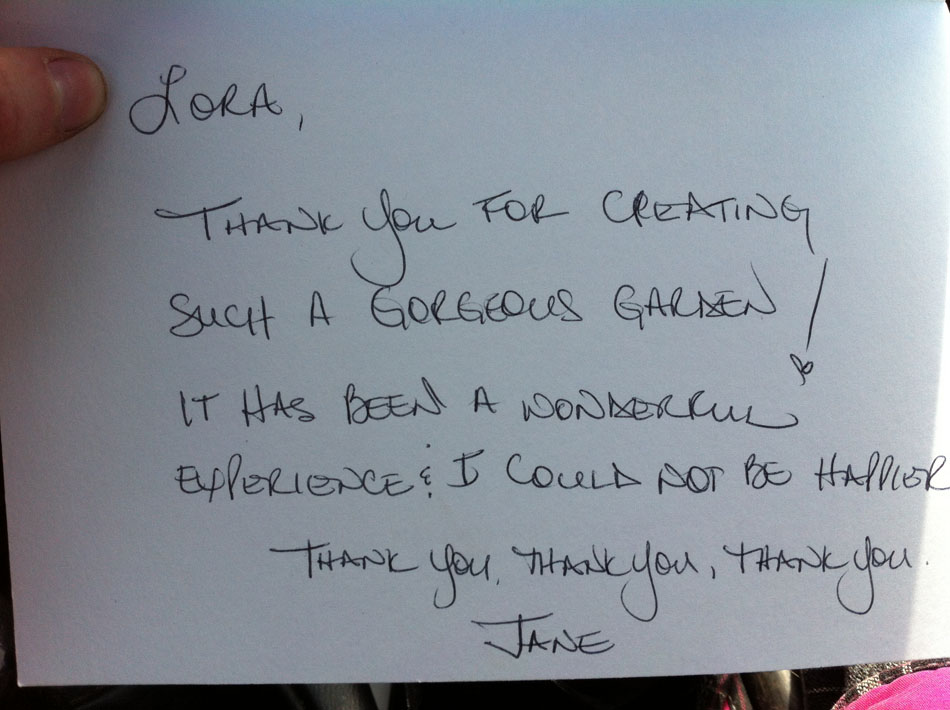 LORA,
THANK YOU FOR CREATING
SUCH A GORGEOUS GARDEN!
IT HAS BEEN A WONDERFUL
EXPERIENCE & I COULD NOT BE HAPPIER
THANK YOU, THANK YOU, THANK YOU.
JANE